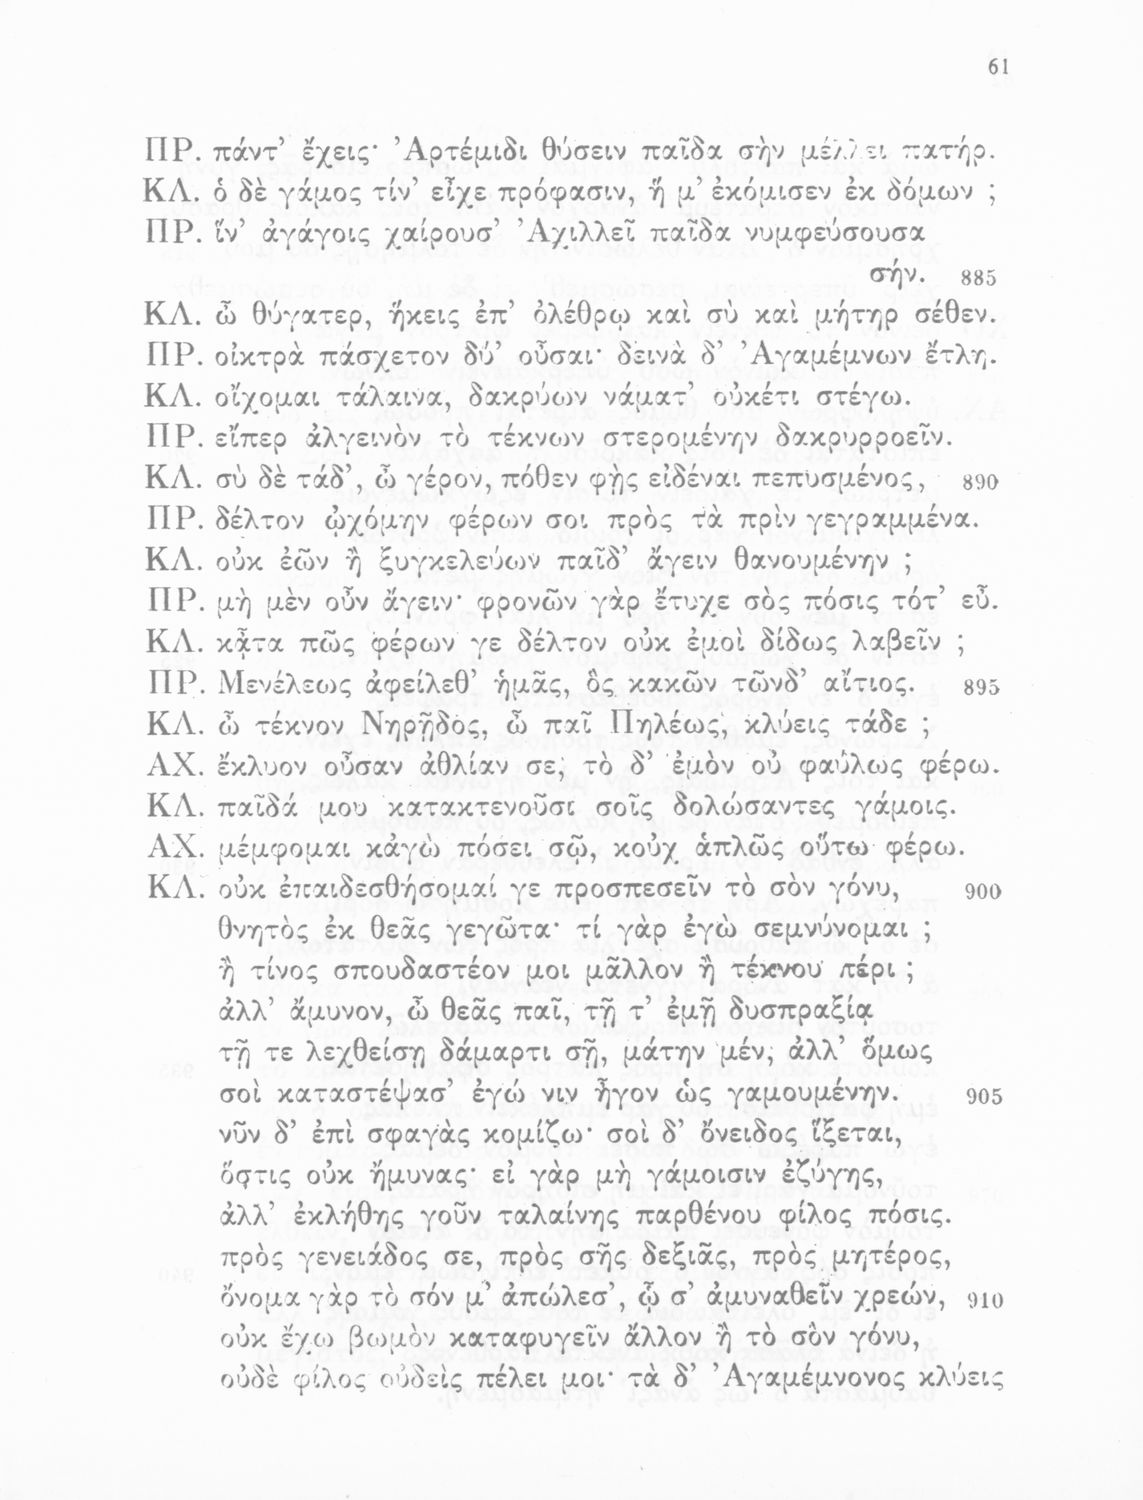 61
ΠΡ. πάντ’ ἔχεις· Ἀρτέμιδι θύσειν παῖδα σὴν μέλλει πατήρ.
ΚΛ. ὁ δὲ γάμος τίν’ εἶχε πρόφασιν, ᾗ μ’ ἐκόμισεν ἐκ δόμων ;
ΠΡ. ἵν’ ἀγάγοις χαίρουσ’ Ἀχιλλεῖ παῖδα νυμφεύσουσα
σήν. 885
ΚΛ. ὦ θύγατερ, ἥκεις ἐπ’ ὀλέθρῳ καὶ σὺ καὶ μήτηρ σέθεν.
ΠΡ. οἰκτρὰ πάσχετον δύ’ οὖσαι· δεινὰ δ’ Ἀγαμέμνων ἔτλη.
ΚΛ. οἴχομαι τάλαινα, δακρύων νάματ’ οὐκέτι στέγω.
ΠΡ. εἴπερ ἀλγεινὸν τὸ τέκνων στερομένην δακρυρροεῖν.
ΚΛ. σὺ δὲ τάδ’, ὦ γέρον, πόθεν φῂς εἰδέναι πεπυσμένος, 890
ΠΡ. δέλτον ᾠχόμην φέρων σοι πρὸς τὰ πρὶν γεγραμμένα.
ΚΛ. οὐκ ἐῶν ἢ ξυγκελεύων παῖδ’ ἄγειν θανουμένην ;
ΠΡ. μὴ μὲν οὖν ἄγειν· φρονῶν γὰρ ἔτυχε σὸς πόσις τότ’ εὖ.
ΚΛ. κᾆτα πῶς φέρων γε δέλτον οὐκ ἐμοὶ δίδως λαβεῖν ;
ΠΡ. Μενέλεως ἀφείλεθ’ ἡμᾶς, ὃς κακῶν τῶνδ’ αἴτιος. 895
ΚΛ. ὦ τέκνον Νηρῇδος, ὦ παῖ Πηλέως, κλύεις τάδε ;
ΑΧ. ἔκλυον οὖσαν ἀθλίαν σε, τὸ δ’ ἐμὸν οὐ φαύλως φέρω.
ΚΛ. παῖδά μου κατακτενοῦσι σοῖς δολώσαντες γάμοις.
ΑΧ. μέμφομαι κἀγὼ πόσει σῷ, κοὐχ ἁπλῶς οὕτω φέρω.
ΚΛ. οὐκ ἐπαιδεσθήσομαί γε προσπεσεῖν τὸ σὸν γόνυ, 900
θνητὸς ἐκ θεᾶς γεγῶτα· τί γὰρ ἐγὼ σεμνύνομαι ;
ἢ τίνος σπουδαστέον μοι μᾶλλον ἢ τέκνου πέρι ;
ἀλλ’ ἄμυνον, ὦ θεᾶς παῖ, τῇ τ’ ἐμῇ δυσπραξίᾳ
τῇ τε λεχθείσῃ δάμαρτι σῇ, μάτην μέν, ἀλλ’ ὅμως
σοὶ καταστέψασ’ ἐγώ νιν ἦγον ὡς γαμουμένην. 905
νῦν δ’ ἐπὶ σφαγὰς κομίζω· σοὶ δ’ ὄνειδος ἵξεται,
ὅστις οὐκ ἤμυνας· εἰ γὰρ μὴ γάμοισιν ἐζύγης,
ἀλλ’ ἐκλήθης γοῦν ταλαίνης παρθένου φίλος πόσις.
πρὸς γενειάδος σε, πρὸς σῆς δεξιᾶς, πρὸς μητέρος,
ὄνομα γὰρ τὸ σόν μ’ ἀπώλεσ’, ᾧ σ’ ἀμυναθεῖν χρεών, 910
οὐκ ἔχω βωμὸν καταφυγεῖν ἄλλον ἢ τὸ σὸν γόνυ,
οὐδὲ φίλος οὐδεὶς πέλει μοι· τὰ δ’ Ἀγαμέμνονος κλύεις